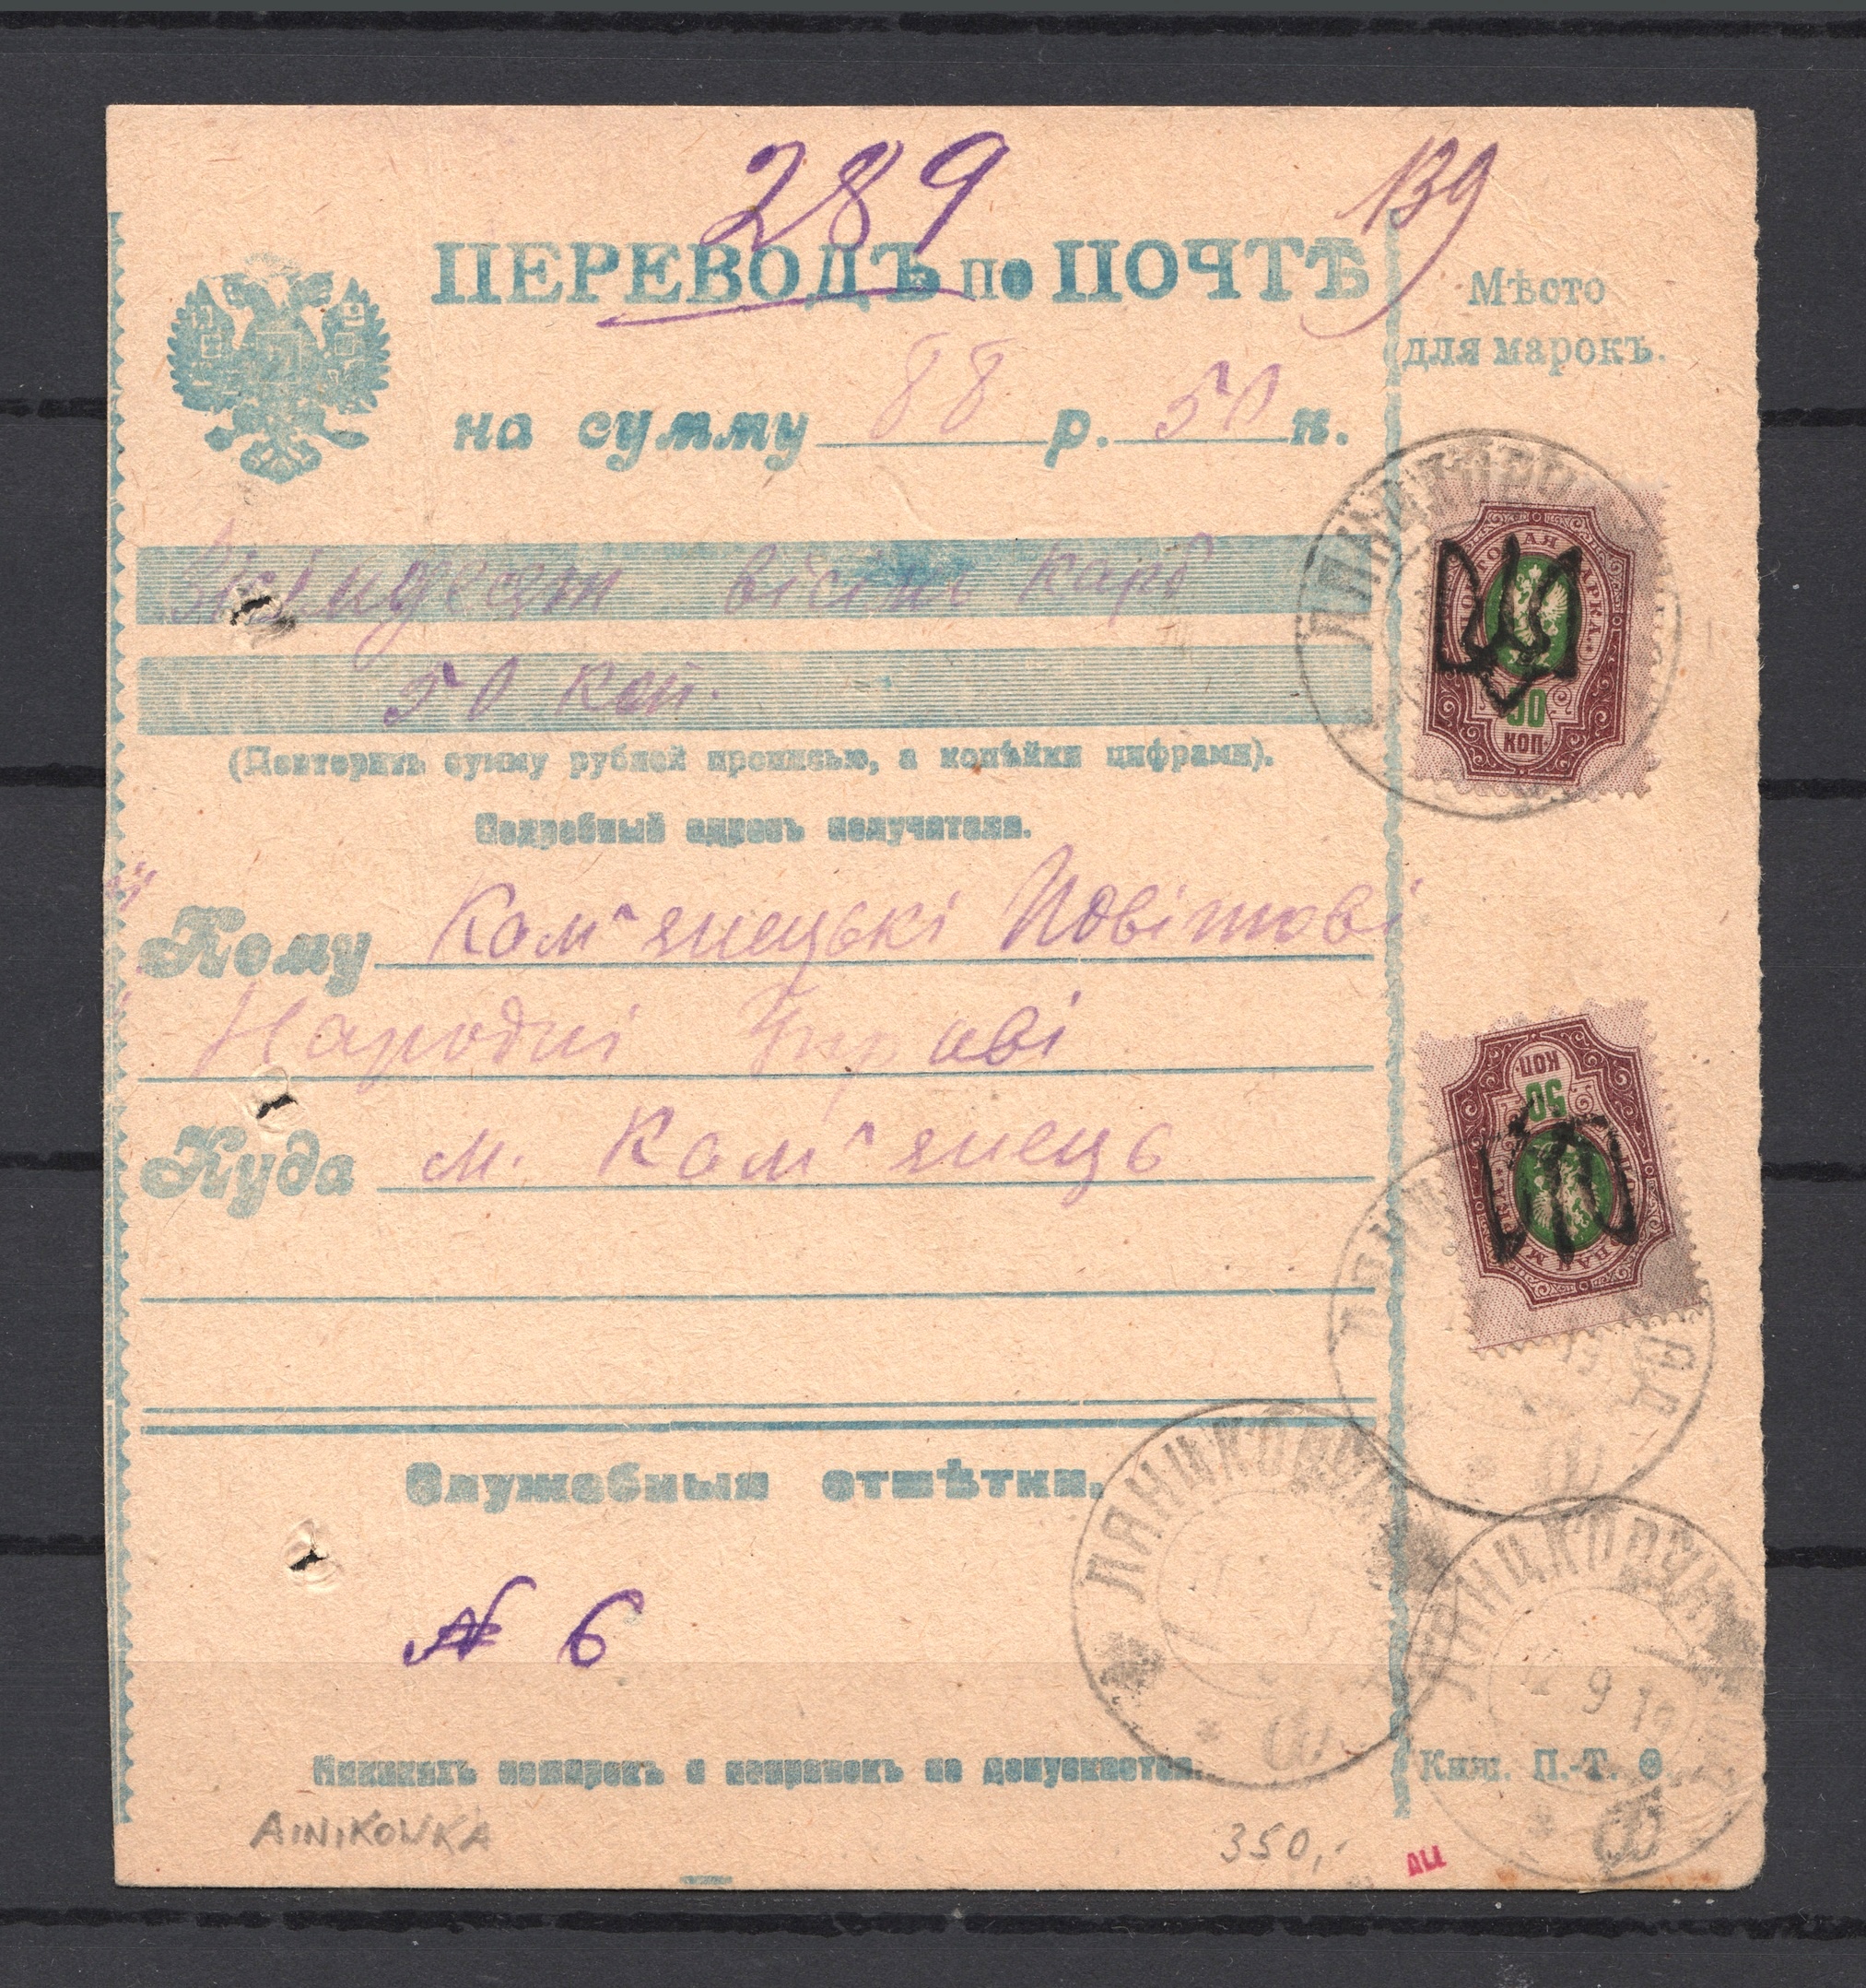 289
139
ПЕРЕВОДЪ по ПОЧТѢ
Мѣсто
для марокъ.
на сумму 88 р. 50 к.
Вісімдесят вісімь карб
50 коп.
(Повторить сумму рублей прописью, а копѣйки цифрами).
Подробный адресъ получателя.
Кому Кам'янецькі Повітові
Народні Управі
Куда м. Кам'янець
50
КОП
50
КОП.
Служебныя отмѣтки.
№ 6
ЛЯНЦКОРУН
ЛЯНЦКОРУН
9
Никакихъ помарокъ и поправокъ не допускается.
AINIKOWKA
350,-
ALL